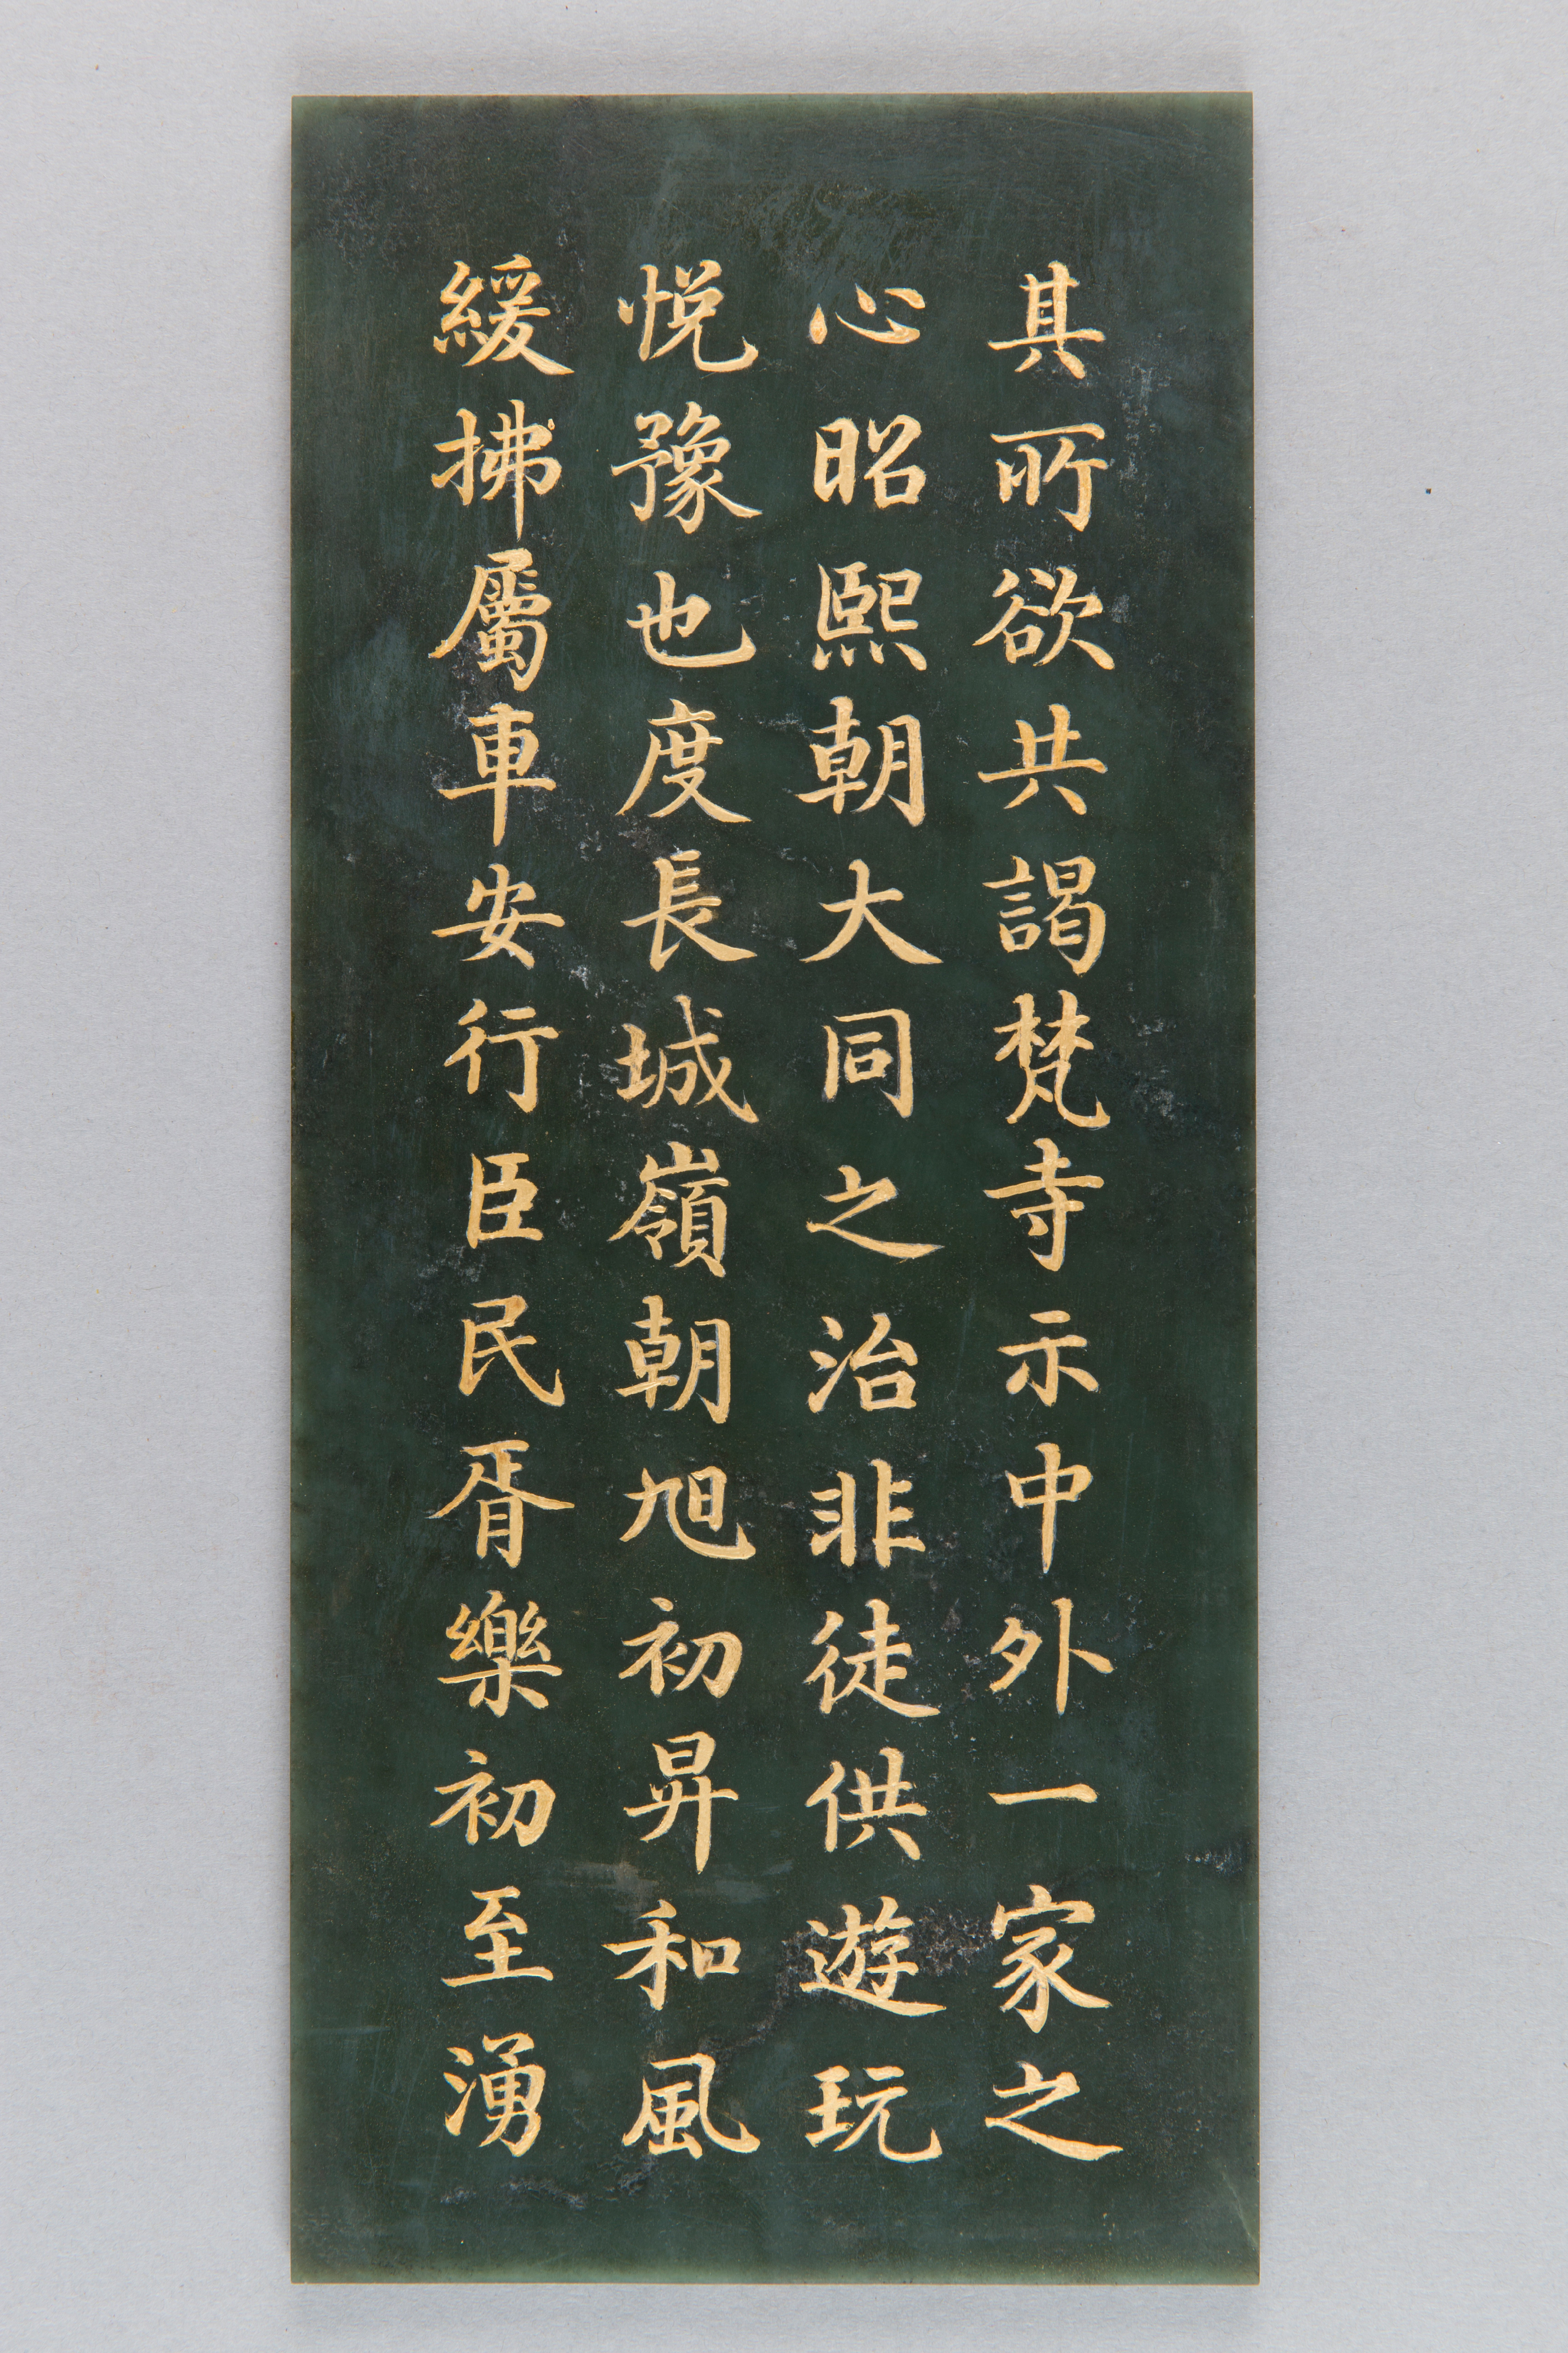 其所欲共謁梵寺示中外一家之
心昭熙朝大同之治非徒供遊玩
悅豫也度長城嶺朝旭初昇和風
緩拂屬車安行臣民胥樂初至湧